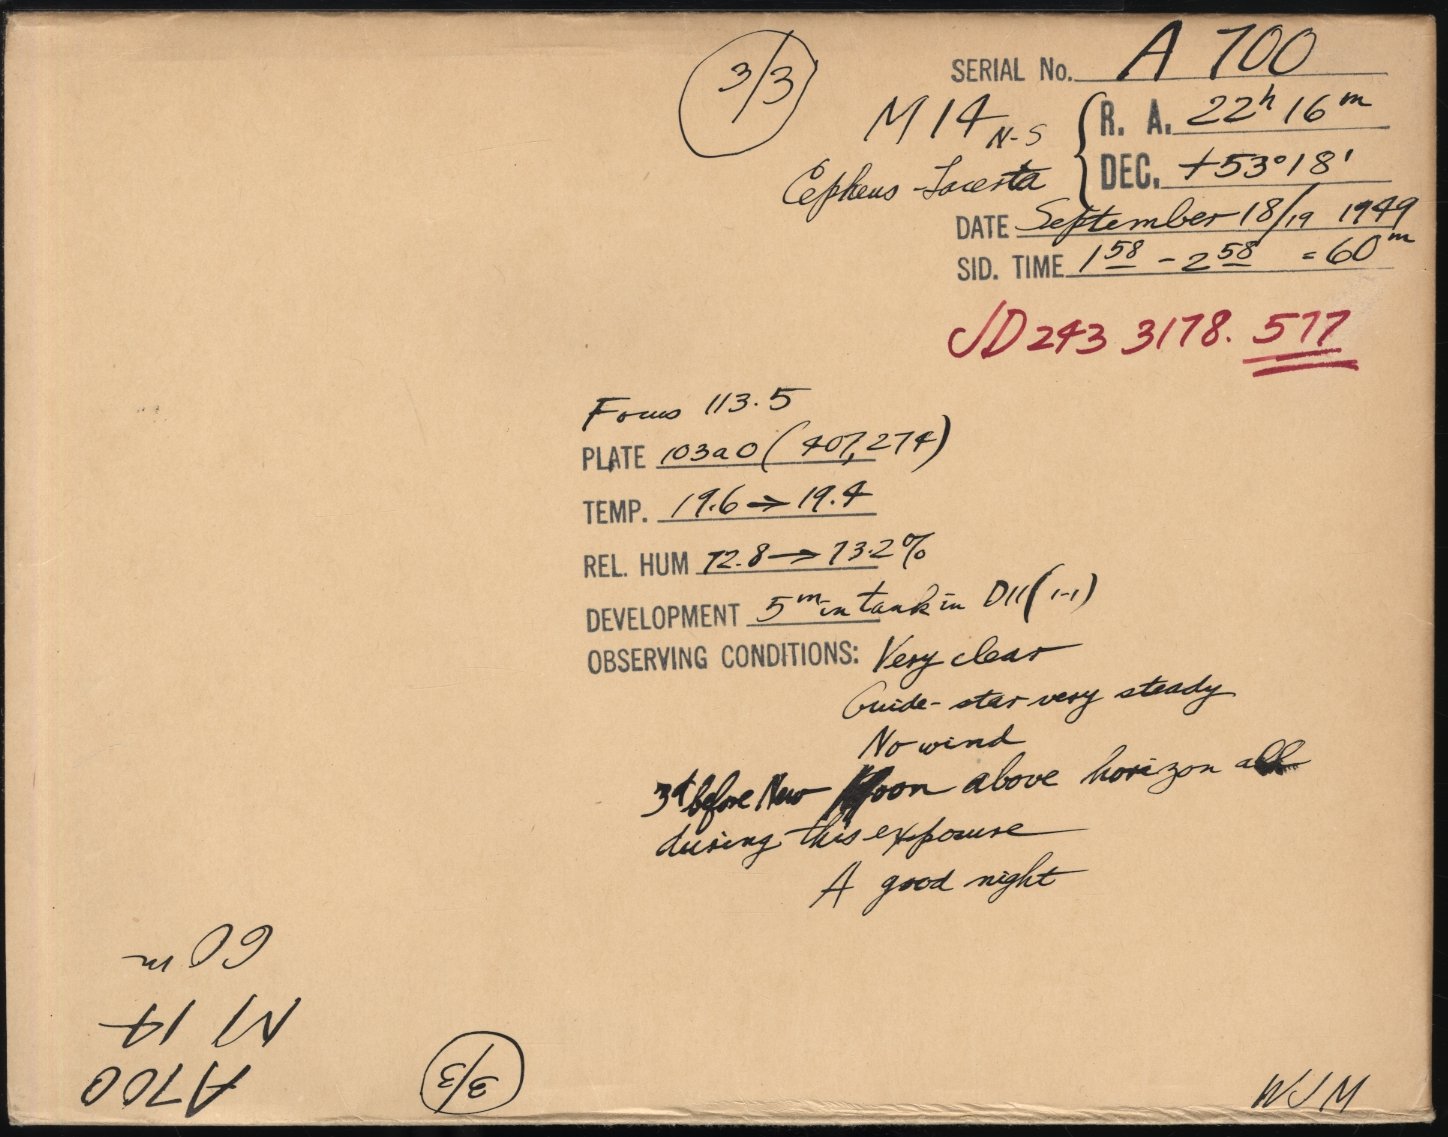 3/3
SERIAL No. A 700
M 14 N-S
R. A. 22h 16m
Cepheus - Lacerta
DEC. +53° 18'
DATE September 18/19 1949
SID. TIME 1 58 - 2 58 = 60m
JD 243 3178. 577
Focus 113.5
PLATE 103aO (407,274)
TEMP. 19.6 → 19.4
REL. HUM 72.8 → 73.2%
DEVELOPMENT 5m in tank in D11 (1-1)
OBSERVING CONDITIONS: Very clear
Guide-star very steady
No wind
3d before New Moon above horizon all
during this exposure
A good night
60 m
M 14
A700
3/3
WJM